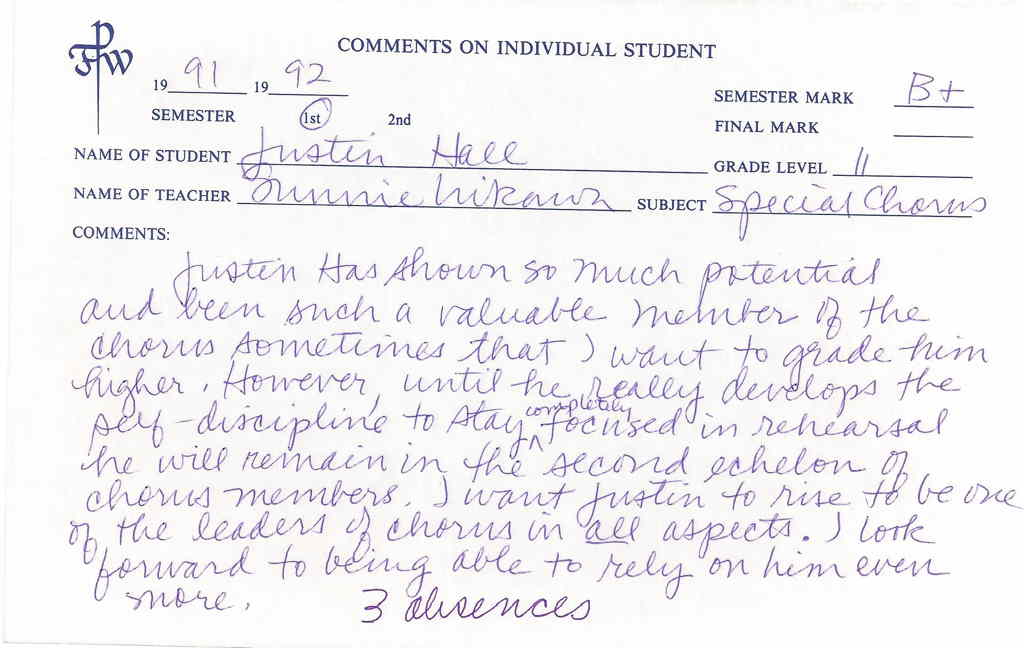 FPW
COMMENTS ON INDIVIDUAL STUDENT
19 91 19 92
SEMESTER 1st 2nd
SEMESTER MARK B+
FINAL MARK
NAME OF STUDENT Justin Hall
GRADE LEVEL 11
NAME OF TEACHER
SUBJECT Special Chorus
COMMENTS:
Justin Has shown so much potential
and been such a valuable member of the
chorus sometimes that I want to grade him
higher. However, until he really develops the
self-discipline to stay completely focused in rehearsal
he will remain in the second echelon of
chorus members. I want Justin to rise to be one
of the leaders of chorus in all aspects. I look
forward to being able to rely on him even
more. 3 absences